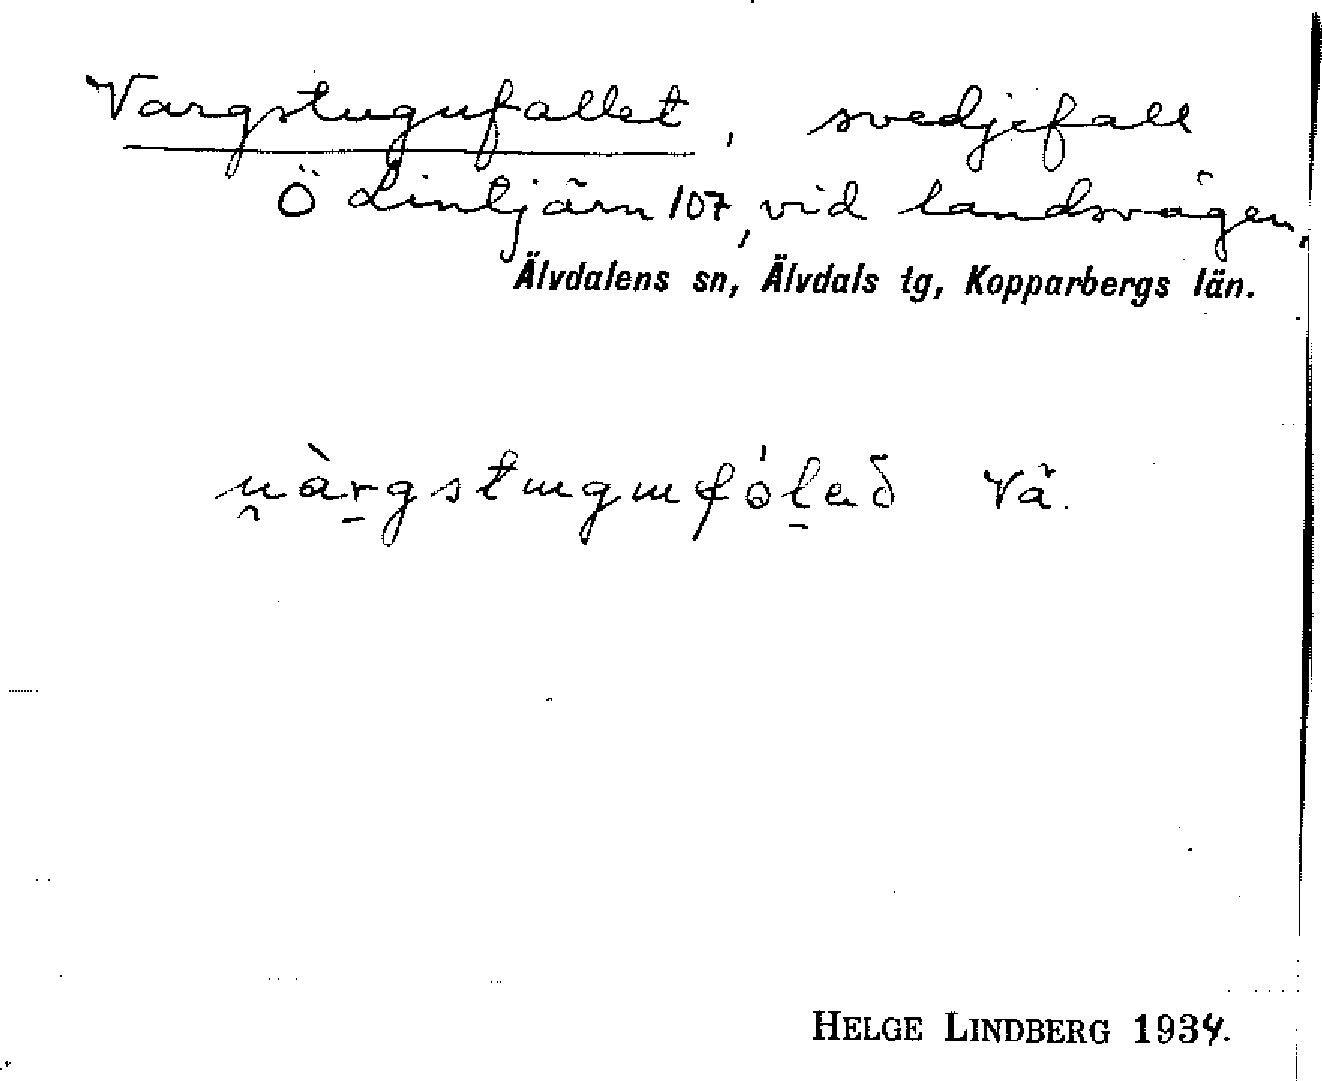 Vargstugufallet, svedjefall
Ö Lintjärn 107, vid landsvägen.
Älvdalens sn, Älvdals tg, Kopparbergs län.
u̯àr̠gstugufó́l̠eð Vä.
HELGE LINDBERG 1934.